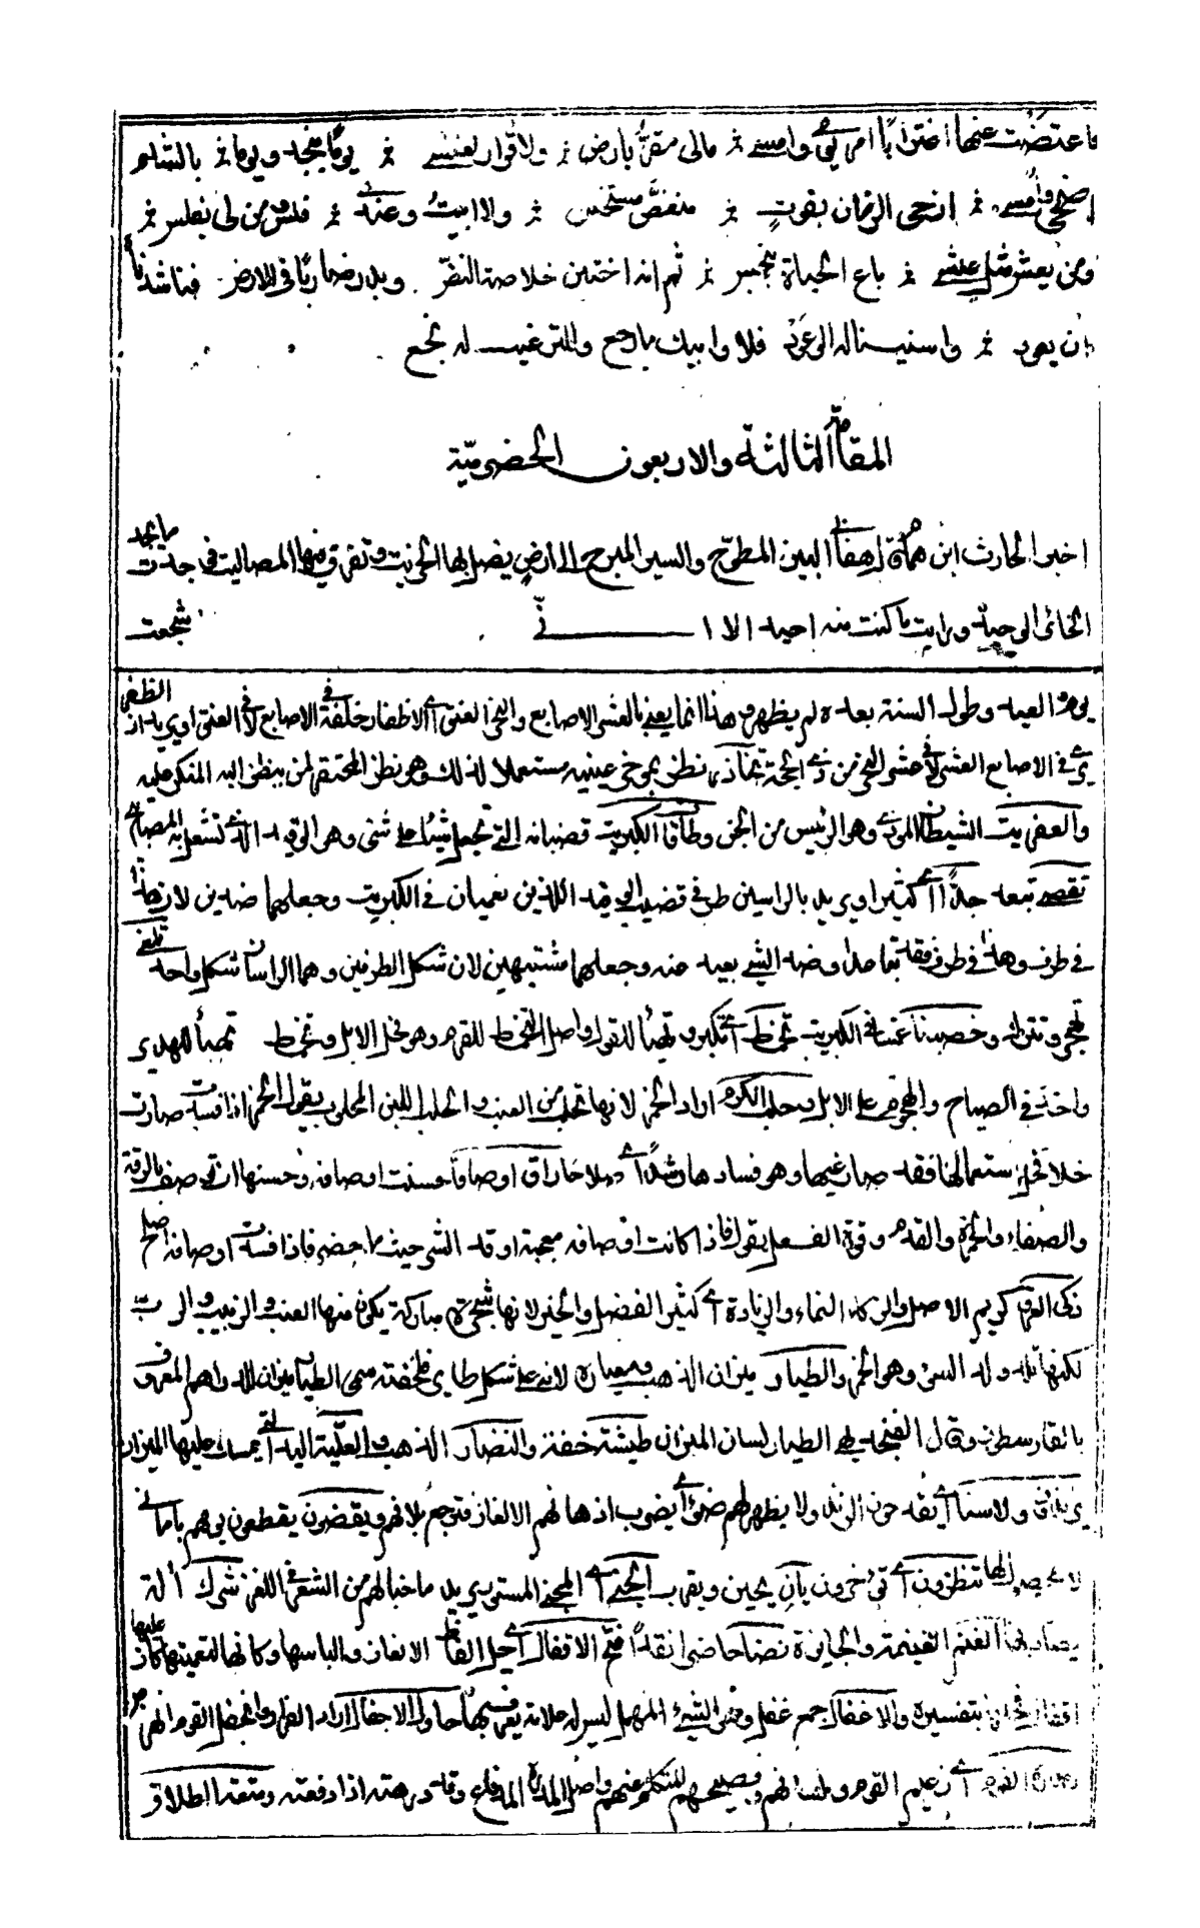 ما اعتضت عنها اغترابا امر يومى وامسى مالى مقر بارض ولا قرار لعنسى يوما بنجد ويوما بالشام
اضحى وامسى ازجى الزمان بقوت منغص مستخس ولا ابيت وعندى فلس ومن لى بفلس
ومن يعش مثل عيشى باع الحياة ببخس ثم انه اختبن خلاصة النض وبدر ضاربا فى الارض فناشدناه
ان يعود واسنينا له الوعود فلا وابيك ما رجع والترغيب له نجع
المقامة الثالثة والاربعون الحضرمية
اخبر الحارث ابن همام قال هفا بى البين المطوح والسير المبرح الى ارض يضل بها الخريت وتفرق فيها المصاليت فوجدت ما يجد
الحائر الوحيد ورايت ما كنت منه احيد الا انى شجعت
يوم العيد وطول السنة بعده لم يظهر هذا انما يعنى بالعشر الاصابع وانحر العشر الاظفار خلفة فى الاصابع لا فى العنق او يريد اذ الظفر
فى الاصابع العشر
والعفريت الشيطان المؤذى وهو الرئيس من الجن وطاقة الكبريت قضبانه التى تجعل شيئا على شئ وهو الوقيد الذى تشعل به المصباح
تقصد تبعد جدا اى كثيرا ويريد بالراسين طرفى قضيب الوقيد اللذين يغمسان فى الكبريت وجعلهما ضدين لان هذا
فى طرف وهذا فى طرف فقد تباعدا وضد الشئ بعيد عنه وجعلهما مشتبهين لان شكل الطرفين وهما الراسان شكل واحد تلغى
تهجر وتترك وخضبتا غمستا فى الكبريت تخمط اى تكبر وتهيأ للقول واصل التخمط للقرم وهو فحل الابل وتخمط تهيأ للهدير
واخذ فى الصياح والهجوم على الابل وحلب الكرم اراد الخمر لانها تحلب من العنب والحلب اللبن المحلوب يقول الخمر اذا فسدت صارت
خلا فحل استعمالها فقد صار غيها وهو فسادها رشدا اى صلاحا راق اوصافا حسنت اوصافه وحسنها ان توصف بالرقة
والصفاء والحمرة والقدم وقوة الفعل يقول فاذا كانت اوصافه معجبة اوقد الشر حيث ما حضر فاذا فسدت اوصافه اصلح
زكى العرق كريم الاصل والزكاء النماء والزيادة اى كثير الفضل والخير لانها شجرة مباركة يكون منها العنب والزبيب والرب
لكنها تلد ولد السوء وهو الخمر والطيار ميزان الذهب ومعياره لانه على شكل طاير فلخفته سمى الطيار ميزان الدراهم المعروف
بالقارسطون وقال الفنجديهى الطيار لسان الميزان طيشة خفة والنضار الذهب والعلية اليد التى يمسك عليها الميزان
لزلالى ولا سنا اى يقدحون الزناد ولا يظهر لهم ضوء اى يضرب اذهانهم الالغاز فترجع بلا فهم ويقضون يقطعون يومهم بامانى
لا يصلونها تنظرون اى تؤخرون يان يحين ويقرب الخبئ اى المخبئ المستور يريد ما خبا لهم من الشعر فى اللغز شرك آلة
يصاد بها الغنم الغنيمة والجايزة نضا حاضرا نقدا فتح الاقفال اى حل الفاظ الالغاز والباسها وكانها لتعميتها عليها
اقفال فحلها بتفسيره والاغفال جمع غفل وهو الشئ المهمل ليس له علامة يعرف بها حاول الاجفال اراد الفرار وانجفل القوم انهزموا
مدره القوم اى زعيم القوم ولسانهم وفصيحهم المتكلم عنهم واصل المدره المدافع وقد درهته اذا دفعته ومتعة الطلاق